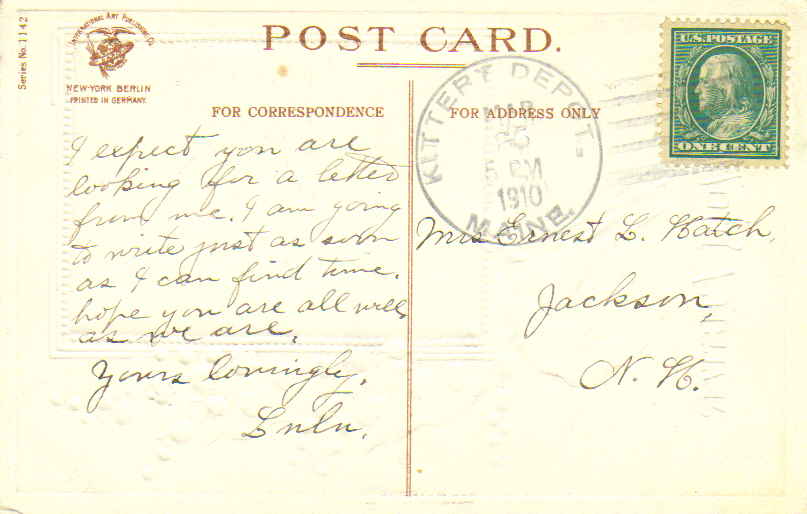 Series No. 1142
INTERNATIONAL ART PUBLISHING CO.
NEW-YORK BERLIN
PRINTED IN GERMANY.
POST CARD.
FOR CORRESPONDENCE
FOR ADDRESS ONLY
U.S. POSTAGE
ONE CENT
KITTERY DEPOT.
MAR
5 PM
1910
MAINE.
I expect you are
looking for a letter
from me. I am going
to write just as soon
as I can find time.
hope you are all well,
as we are.
Yours lovingly,
Lulu.
Mrs Ernest L. Hatch,
Jackson,
N. H.